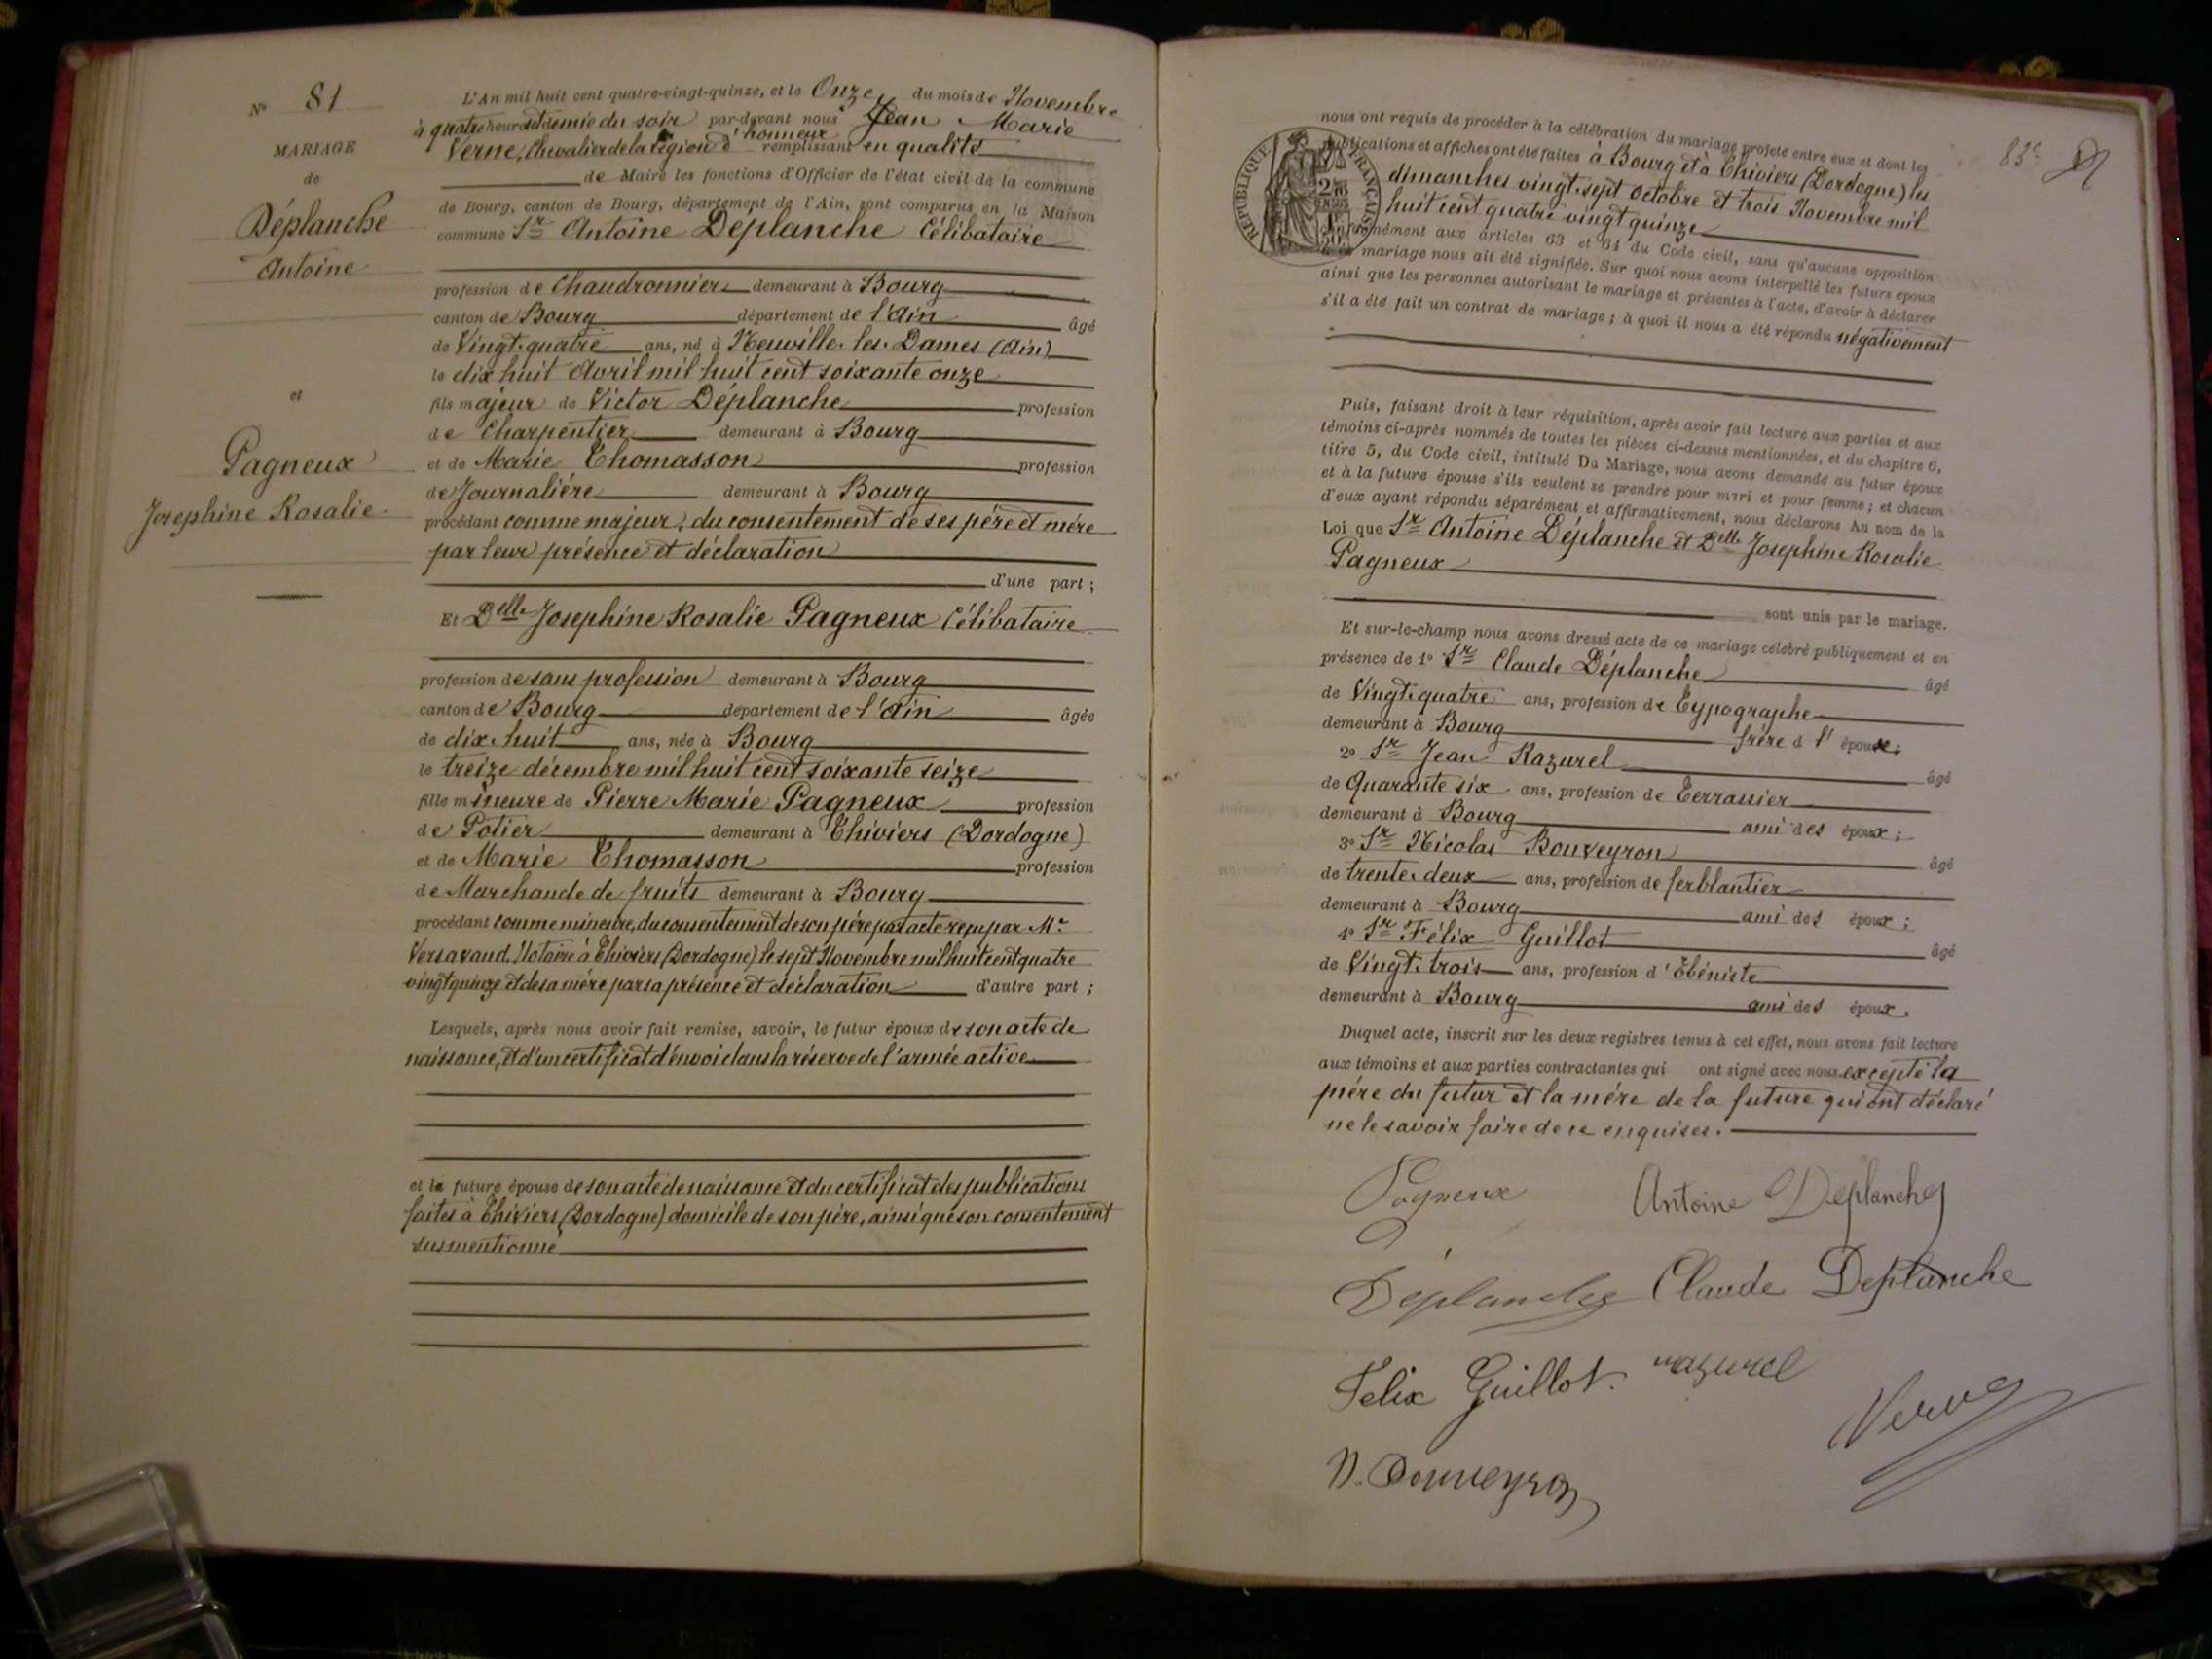 Nº 81
MARIAGE
de
Déplanche
Antoine
et
Pagneux
Josephine Rosalie
L'An mil huit cent quatre-vingt-quinze, et le Onze du mois de Novembre
à quatre heures et demie du soir par-devant nous Jean Marie
Verne, Chevalier de la Légion d'honneur remplissant en qualité
de Maire les fonctions d'Officier de l'état civil de la commune
de Bourg, canton de Bourg, département de l'Ain, sont comparus en la Maison
commune Sr Antoine Déplanche Célibataire
profession de Chaudronnier demeurant à Bourg
canton de Bourg département de l'Ain âgé
de Vingt-quatre ans, né à Neuville-les-Dames (Ain)
le dix huit Avril mil huit cent soixante onze
fils majeur de Victor Déplanche profession
de Charpentier demeurant à Bourg
et de Marie Thomasson profession
de Journalière demeurant à Bourg
procédant comme majeur, du consentement de ses père et mère
par leur présence et déclaration
d'une part;
Et Delle Josephine Rosalie Pagneux Célibataire
profession de sans profession demeurant à Bourg
canton de Bourg département de l'Ain âgée
de dix-huit ans, née à Bourg
le treize décembre mil huit cent soixante seize
fille mineure de Pierre Marie Pagneux profession
de Potier demeurant à Thiviers (Dordogne)
et de Marie Thomasson profession
de Marchande de fruits demeurant à Bourg
procédant comme mineure, du consentement de son père par acte reçu par Me
Versavaud, Notaire à Thiviers (Dordogne) le sept Novembre mil huit cent quatre
vingt quinze et de sa mère par sa présence et déclaration d'autre part;
Lesquels, après nous avoir fait remise, savoir, le futur époux de son acte de
naissance, et d'un certificat d'envoi dans la réserve de l'armée active
et la future épouse de son acte de naissance et du certificat des publications
faites à Thiviers (Dordogne) domicile de son père, ainsi que son consentement
susmentionné
83e
RÉPUBLIQUE FRANÇAISE
nous ont requis de procéder à la célébration du mariage projeté entre eux et dont les
publications et affiches ont été faites à Bourg et à Thiviers (Dordogne) les
dimanches vingt-sept Octobre et trois Novembre mil
huit cent quatre vingt quinze
conformément aux articles 63 et 64 du Code civil, sans qu'aucune opposition
à ce mariage nous ait été signifiée. Sur quoi nous avons interpellé les futurs époux
ainsi que les personnes autorisant le mariage et présentes à l'acte, d'avoir à déclarer
s'il a été fait un contrat de mariage; à quoi il nous a été répondu négativement
Puis, faisant droit à leur réquisition, après avoir fait lecture aux parties et aux
témoins ci-après nommés de toutes les pièces ci-dessus mentionnées, et du chapitre 6,
titre 5, du Code civil, intitulé Du Mariage, nous avons demandé au futur époux
et à la future épouse s'ils veulent se prendre pour mari et pour femme; et chacun
d'eux ayant répondu séparément et affirmativement, nous déclarons Au nom de la
Loi que Sr Antoine Déplanche et Delle Josephine Rosalie
Pagneux
sont unis par le mariage.
Et sur-le-champ nous avons dressé acte de ce mariage célébré publiquement et en
présence de 1º Sr Claude Déplanche âgé
de Vingt-quatre ans, profession de Typographe
demeurant à Bourg frère d l' époux;
2º Sr Jean Razurel âgé
de Quarante six ans, profession de Terrassier
demeurant à Bourg ami des époux;
3º Sr Nicolas Bonveyron âgé
de trente-deux ans, profession de ferblantier
demeurant à Bourg ami des époux;
4º Sr Félix Guillot âgé
de Vingt-trois ans, profession d'Ebéniste
demeurant à Bourg ami des époux.
Duquel acte, inscrit sur les deux registres tenus à cet effet, nous avons fait lecture
aux témoins et aux parties contractantes qui ont signé avec nous excepté la
mére du futur et la mére de la future qui ont déclaré
ne le savoir faire de ce enquises.
Pagneux Antoine Deplanche
Déplanche Claude Deplanche
Felix Guillot. razurel
Verne
N. Bonveyron